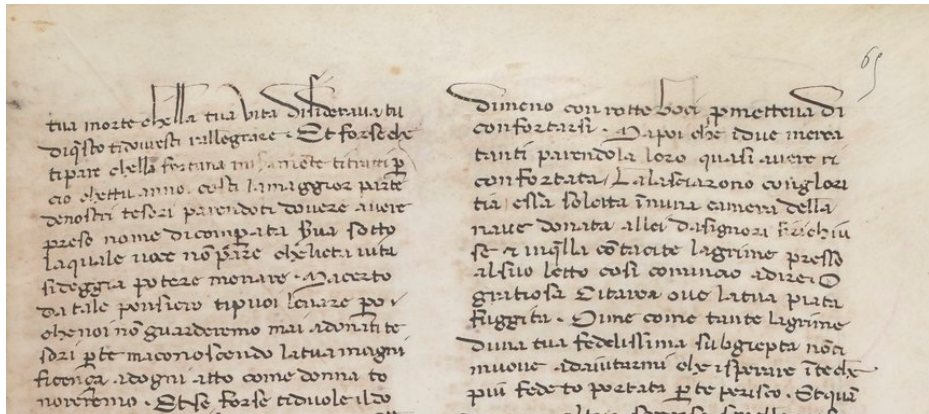 65
tua morte chella tua vita disiderava tu
diqsto tidovresti rallegrare · Et forse che
tipare chella fortuna titratti p
cio chettu anno. costi lamaggior parte
denostri tesori parendoti dovere avere
preso nome dicomperata serva sotto
laquale voce nō pare chelieta vita
sideggia potere menare · Macerto
da tale pensiero tipuoi levare po i
che noi nō guarderemo mai adonati te
sori p te maconoscendo latua magni
ficença adogni atto come donna to
noreremo · Et se forse tiduole ildo
dimeno con rotte boci pmetteva di
confortarsi · Dapoi che idue merca
tanti parendola loro quasi avere ri
confortata / Lalasciarono conglori
tia / essa soletta inuna camera della
nave donata allei dasignori
se & inqlla cō tacite lagrime presso
alsuo letto cosi comincio adire O
gratiosa Citarea ove latua piata
fuggita · Oime come tante lagrime
duna tua fedelissima subgiepta nōti
muove adaiutarmi che isperare i te che
piu fede to portata p te perisco · Et qua